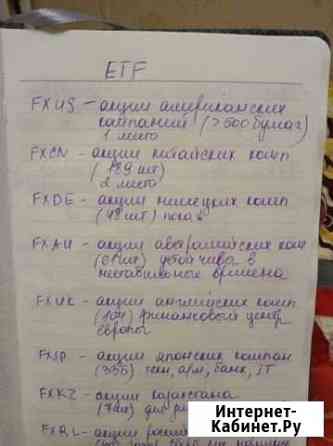 ETF
FXUS - акции американских
компаний (>500 бумаг)
1 место
FXCN - акции китайских комп
(189 шт)
2 место
FXDE - акции немецких комп
(48 шт) пока ↓
FXAU - акции австралийских ком
(61 шт) устойчива в
нестабильные времена
FXUK - акции английских комп
финансовый центр
Европы
FXJP - акции японских компан
банк, IT
FXKZ - акции казахстана
(7шт)
FXRL - акции
Интернет-
Кабинет.Ру